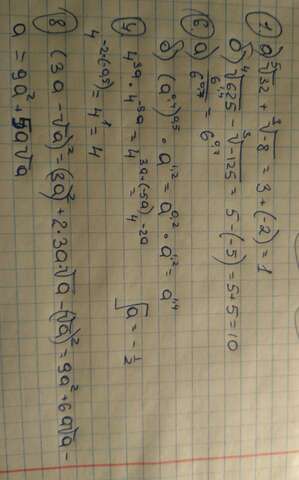 1 a) ⁵√32 + ³√-8 = 3 + (-2) = 1
б) ⁴√625 - ³√-125 = 5 - (-5) = 5+5 = 10
2. a) 6^1,4 / 6^0,7 = 6^0,7
б) (a^0,4)^0,5 · a^1,2 = a^0,2 · a^1,2 = a^1,4
4 4^3a · 4^-5a = 4^3a+(-5a) = 4^-2a √a = -1/2
4^-2·(-0,5) = 4^1 = 4
8 (3a - √a)² = (3a)² + 2·3a·√a - (√a)² = 9a² + 6a√a -
a = 9a² + 5a√a